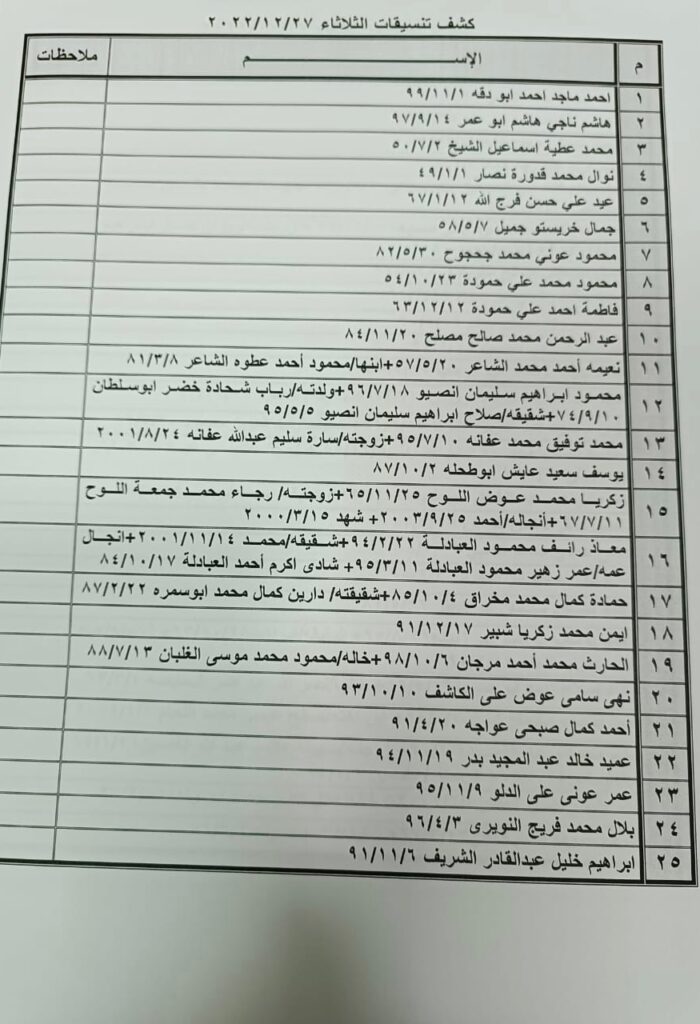 كشف تنسيقات الثلاثاء ٢٠٢٢/١٢/٢٧
م الإســـــــــــم ملاحظات
١ احمد ماجد احمد ابو دقه ٩٩/١١/١
٢ هاشم ناجي هاشم ابو عمر ٩٧/٩/١٤
٣ محمد عطية اسماعيل الشيخ ٥٠/٧/٢
٤ نوال محمد قدورة نصار ٤٩/١/١
٥ عيد علي حسن فرج الله ٦٧/١/١٢
٦ جمال خريستو جميل ٥٨/٥/٧
٧ محمود عوني محمد جحجوح ٨٢/٥/٣٠
٨ محمود محمد علي حمودة ٥٤/١٠/٢٣
٩ فاطمة احمد علي حمودة ٦٣/١٢/١٢
١٠ عبد الرحمن محمد صالح مصلح ٨٤/١١/٢٠
١١ نعيمه أحمد محمد الشاعر ٥٧/٥/٢٠+ابنها/محمود أحمد عطوه الشاعر ٨١/٣/٨
١٢ محمود ابراهيم سليمان انصيو ٩٦/٧/١٨+ولدته/رباب شحادة خضر ابوسلطان
٧٤/٩/١٠+شقيقه/صلاح ابراهيم سليمان انصيو ٩٥/٥/٥
١٣ محمد توفيق محمد عفانه ٩٥/٧/١٠+زوجته/سارة سليم عبدالله عفانه ٢٠٠١/٨/٢٤
١٤ يوسف سعيد عايش ابوطحله ٨٧/١٠/٢
١٥ زكريا محمد عوض اللوح ٦٥/١١/٢٥+زوجته/ رجاء محمد جمعة اللوح
٦٧/٧/١١+أنجاله/أحمد ٢٠٠٣/٩/٢٥+ شهد ٢٠٠٠/٣/١٥
١٦ معاذ رائف محمود العبادلة ٩٤/٢/٢٢+شقيقه/محمد ٢٠٠١/١١/١٤+انجال
عمه/عمر زهير محمود العبادلة ٩٥/٣/١١+ شادى اكرم أحمد العبادلة ٨٤/١٠/١٧
١٧ حمادة كمال محمد مخراق ٨٥/١٠/٤+شقيقته/ دارين كمال محمد ابوسمره ٨٧/٢/٢٢
١٨ ايمن محمد زكريا شبير ٩١/١٢/١٧
١٩ الحارث محمد أحمد مرجان ٩٨/١٠/٦+خاله/محمود محمد موسى الغلبان ٨٨/٧/١٣
٢٠ نهى سامى عوض على الكاشف ٩٣/١٠/١٠
٢١ أحمد كمال صبحى عواجه ٩١/٤/٢٠
٢٢ عميد خالد عبد المجيد بدر ٩٤/١١/١٩
٢٣ عمر عونى على الدلو ٩٥/١١/٩
٢٤ بلال محمد فريج النويرى ٩٦/٤/٣
٢٥ ابراهيم خليل عبدالقادر الشريف ٩١/١١/٦